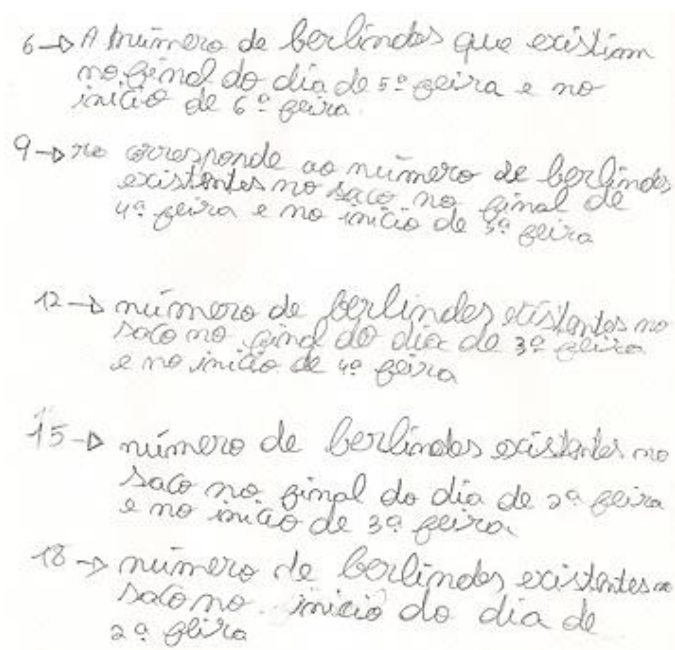 6→ A número de berlindes que existiam
no final do dia de 5ª feira e no
início de 6ª feira.
9→ corresponde ao número de berlindes
existentes no saco no final de
4ª feira e no início de 5ª feira
12→ número de berlindes existentes no
saco no final do dia de 3ª feira
e no início de 4ª feira
15→ número de berlindes existentes no
saco no final do dia de 2ª feira
e no início de 3ª feira.
18→ número de berlindes existentes no
saco no início do dia de
2ª feira